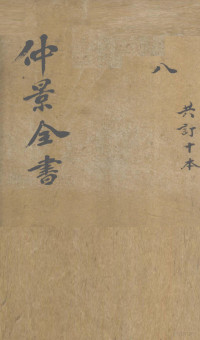 仲景全書
八
共訂十本